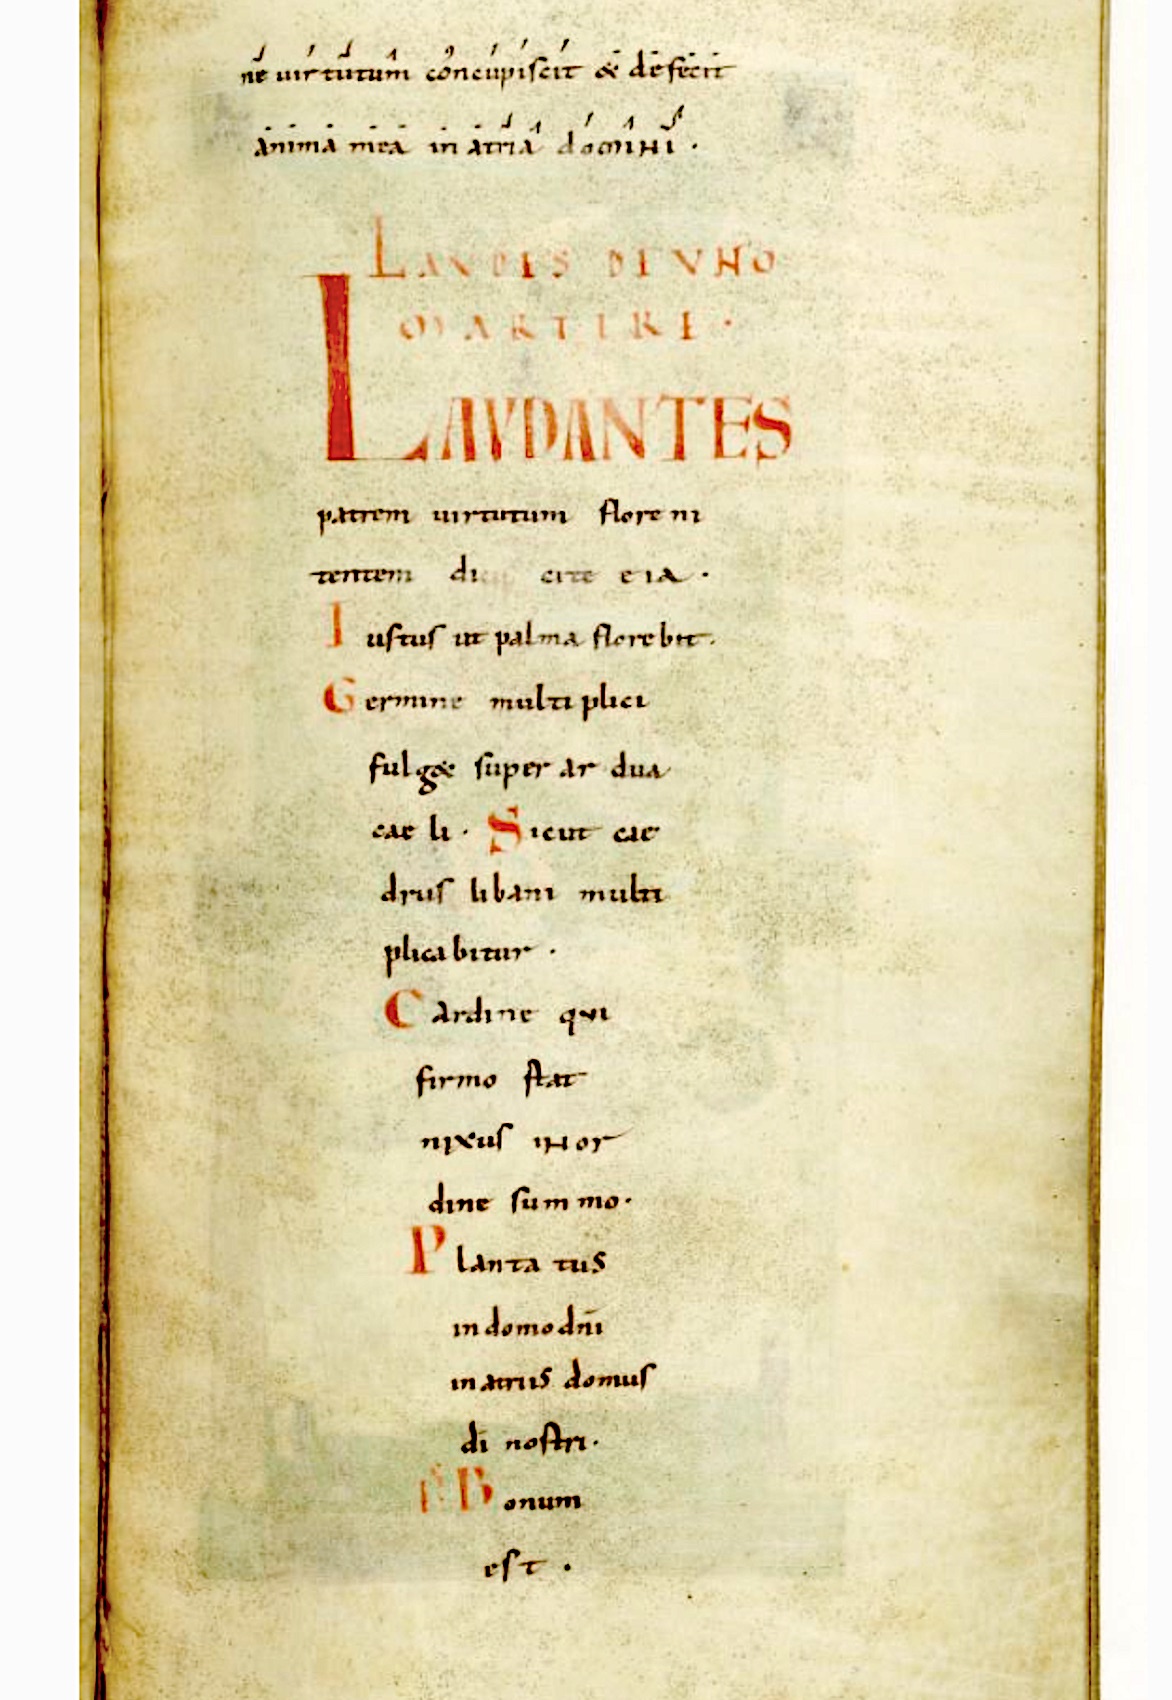 ne uirtutum concupiscit & defecit
anima mea in atria domini .
LAUDES DE UNO
MARTIRE .
LAVDANTES
patrem uirtutum flore ni
tentem di cite eia .
Iustus ut palma florebit .
Germine multi plici
fulg& super ar dua
cae li . Sicut cae
drus libani multi
plicabitur .
Cardine qui
firmo stat
nixus in or
dine sum mo .
Planta tus
in domo dnī
in atriis domus
dī nostri .
Bonum
est .